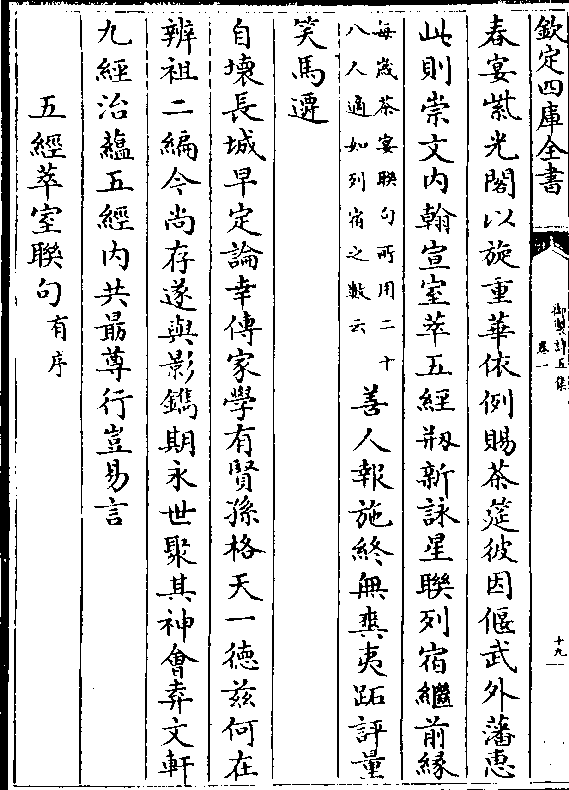 欽定四庫全書
御製詩五集
卷一
十九
春宴紫光閣以旋重華依例賜茶莚彼因偃武外藩惠
此則崇文内翰宣室萃五經刱新詠星聯列宿繼前縁
每歲茶宴聯句所用二十
八人適如列宿之數云
善人報施終無爽夷跖評量
笑馬遷
自壊長城早定論幸傳家學有賢孫格天一德兹何在
辨祖二編今尚存遂與影鐫期永世聚其神會弆文軒
九經治藴五經内共最尊行豈易言
五經萃室聯句有序